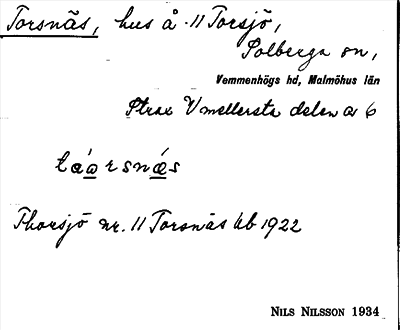 Torsnäs, hus å 11 Torsjö,
Solberga sn,
Vemmenhögs hd, Malmöhus län
Strax V mellersta delen a 6
táa̲rsnǽ̲s
Thorsjö nr. 11 Torsnäs kb 1922
NILS NILSSON 1934